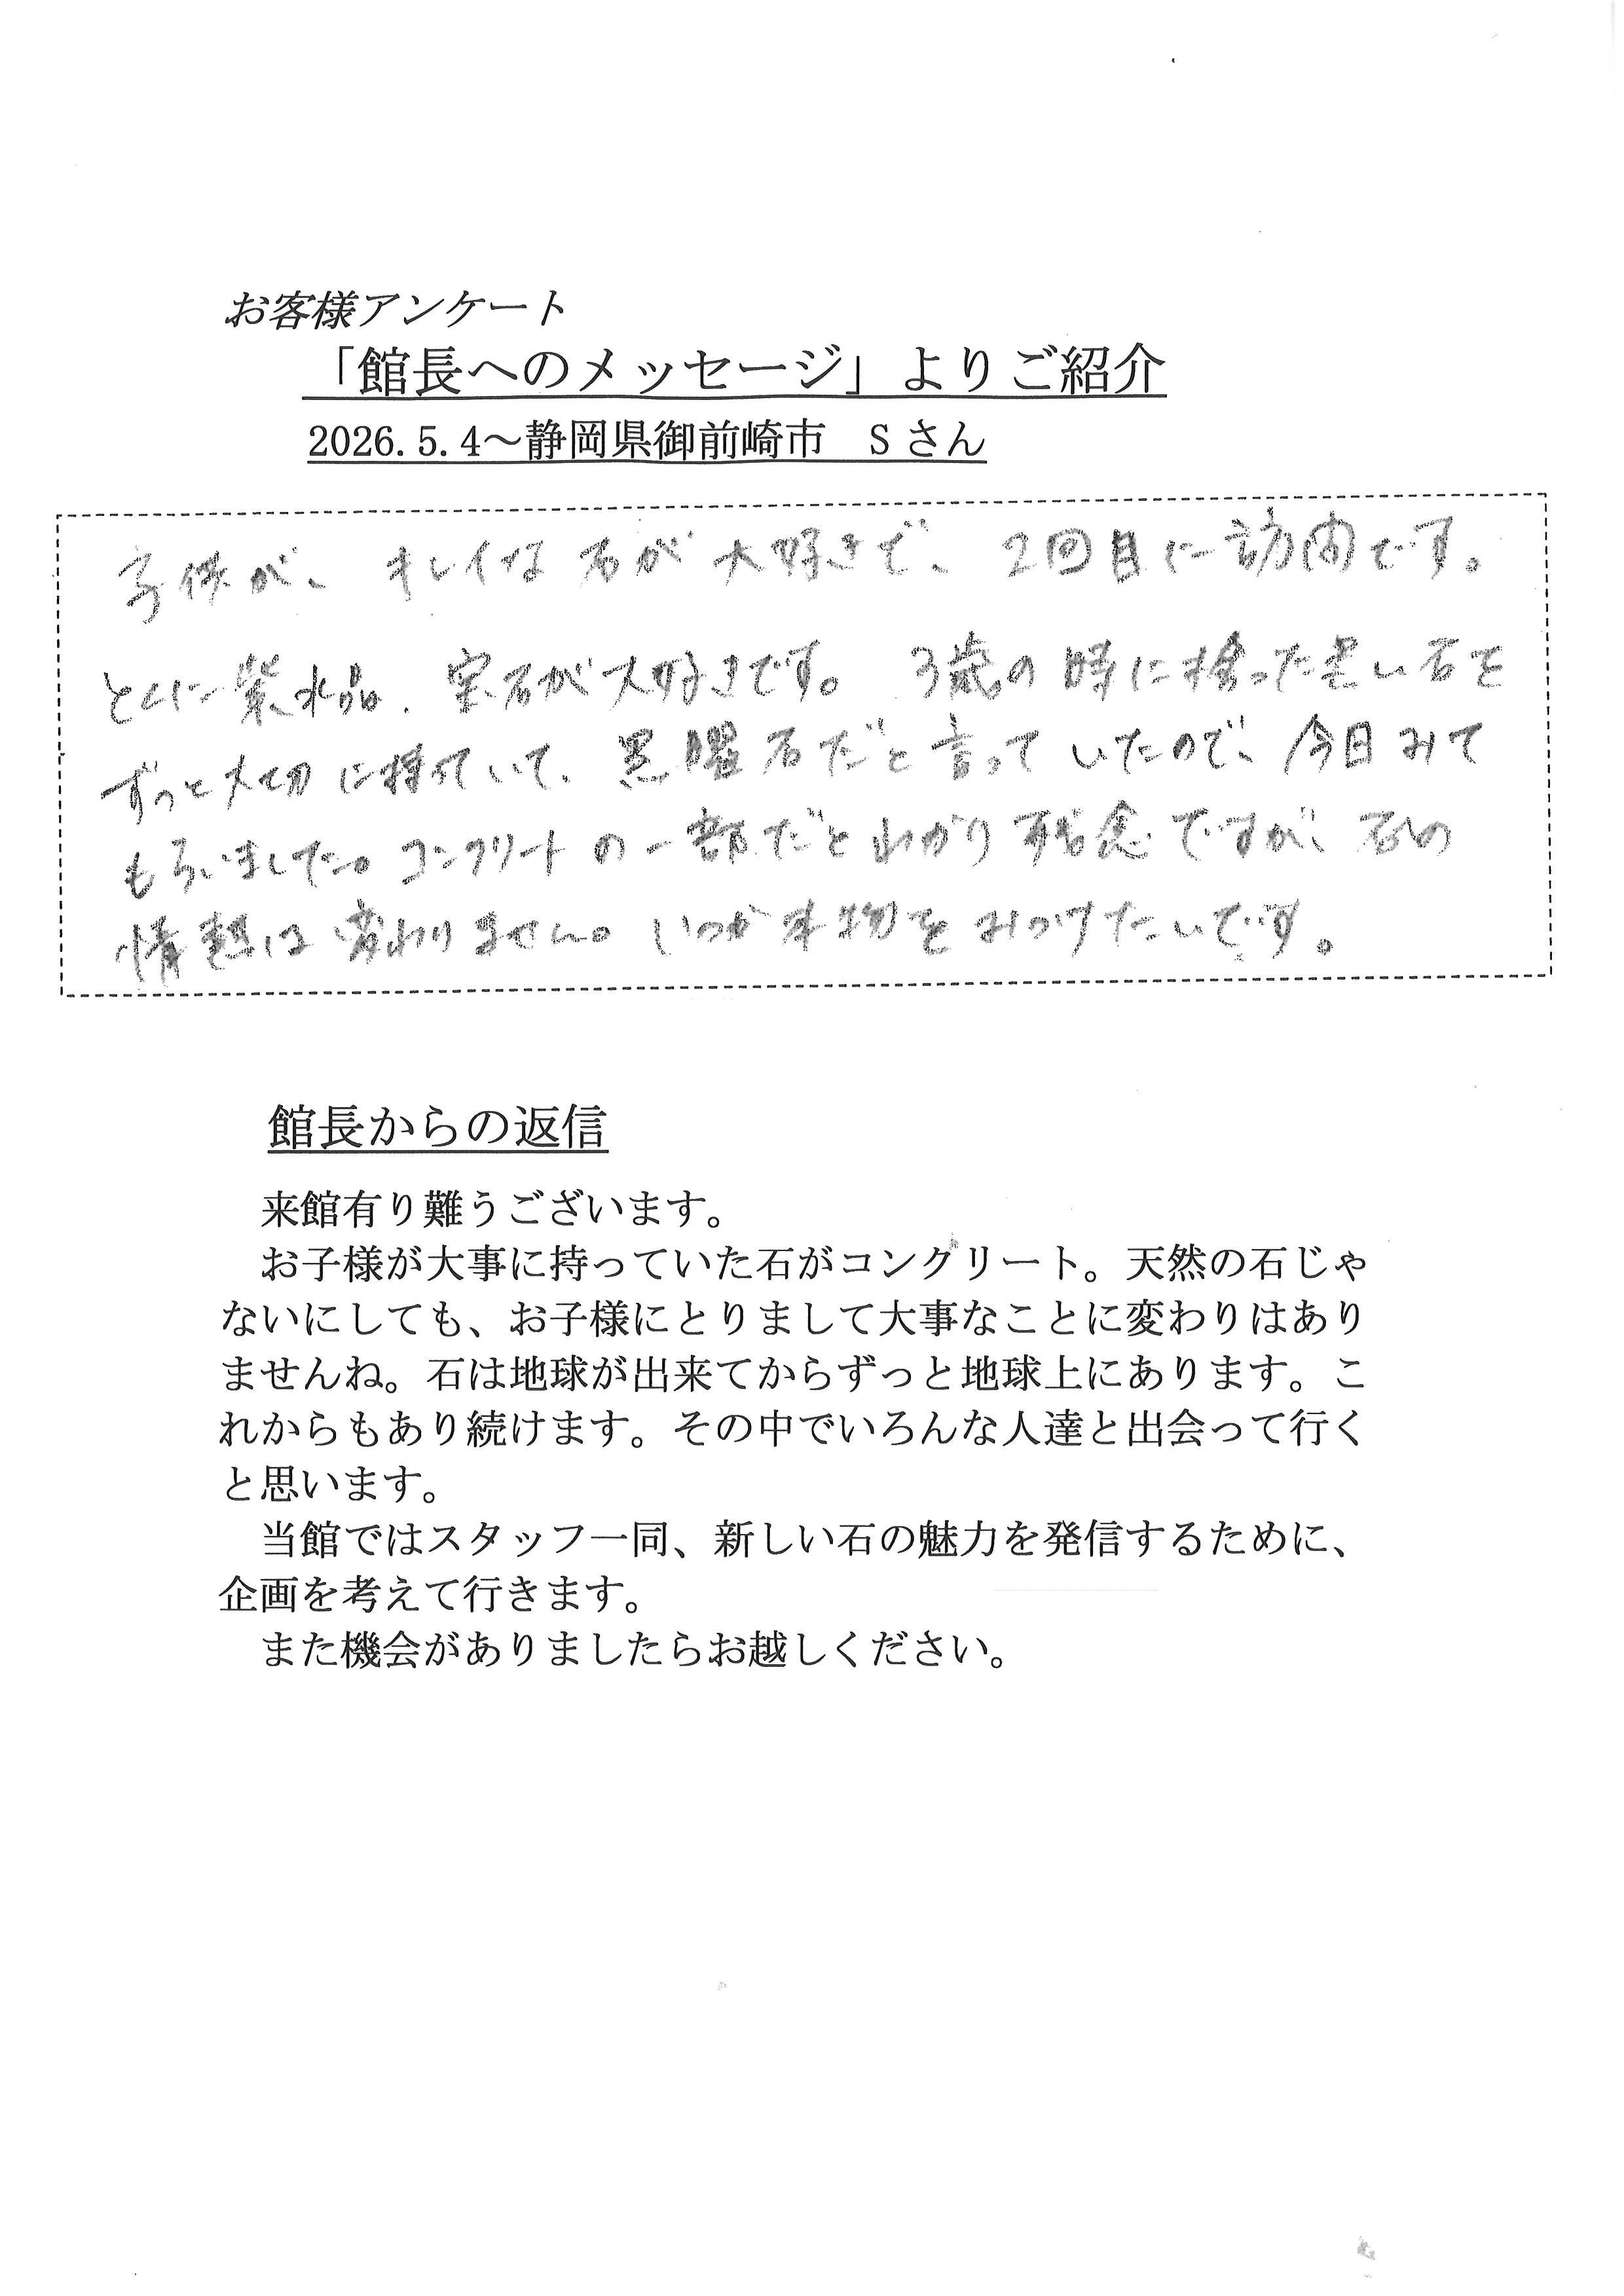 お客様アンケート
「館長へのメッセージ」よりご紹介
2026.5.4～静岡県御前崎市　Sさん
子供が、キレイな石が大好きで、2回目に訪問です。
とくに紫水晶、宝石が大好きです。3歳の時に拾った黒い石を
ずっと大切に持っていて、黒曜石だと言っていたので、今日みて
もらいました。コンクリートの一部だとわかり残念ですが、石の
情熱は変わりません。いつか本物をみつけたいです。
館長からの返信
来館有り難うございます。
お子様が大事に持っていた石がコングリート。天然の石じゃ
ないにしても、お子様にとりまして大事なことに変わりはあり
ませんね。石は地球が出来てからずっと地球上にあります。こ
れからもあり続けます。その中でいろんな人達と出会って行く
と思います。
当館ではスタッフ一同、新しい石の魅力を発信するために、
企画を考えて行きます。
また機会がありましたらお越しください。